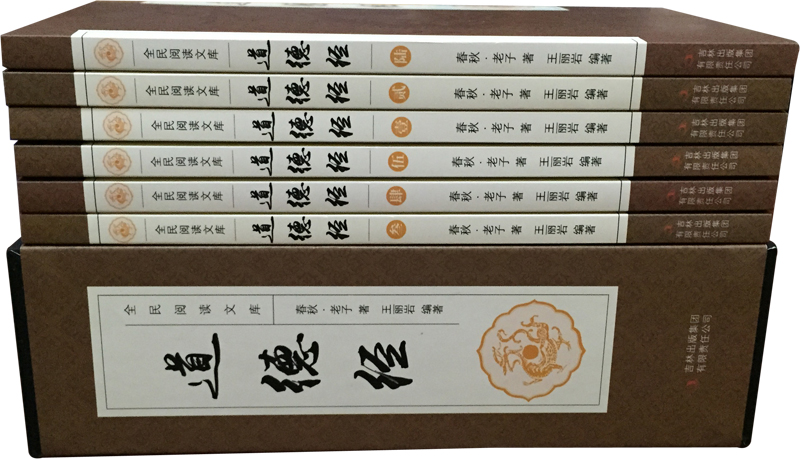 全民阅读文库 道德经 陆 春秋·老子 著 王丽岩 编著 吉林出版集团
有限责任公司
全民阅读文库 道德经 贰 春秋·老子 著 王丽岩 编著 吉林出版集团
有限责任公司
全民阅读文库 道德经 壹 春秋·老子 著 王丽岩 编著 吉林出版集团
有限责任公司
全民阅读文库 道德经 伍 春秋·老子 著 王丽岩 编著 吉林出版集团
有限责任公司
全民阅读文库 道德经 肆 春秋·老子 著 王丽岩 编著 吉林出版集团
有限责任公司
全民阅读文库 道德经 叁 春秋·老子 著 王丽岩 编著 吉林出版集团
有限责任公司
全民阅读文库 春秋·老子 著 王丽岩 编著
道德经
吉林出版集团
有限责任公司